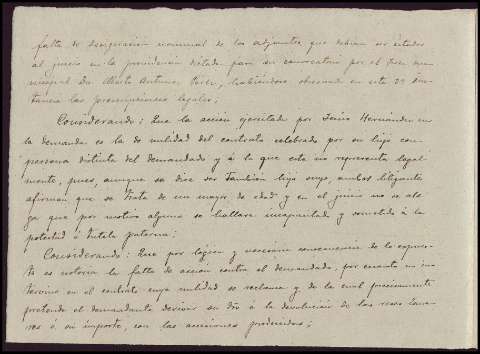 falta de designación nominal de los adjuntos que debian ser citados
al juicio en la providencia dictada para su convocatoria por el Juez mu-
nicipal Dn. Alberto Antonio, habiéndose observado en esta 2ª ins-
tancia las prescripciones legales;
Considerando: Que la acción ejercitada por Jesús Hernández en
la demanda es la de nulidad del contrato celebrado por su hijo con
persona distinta del demandado y á la que esta no representa legal-
mente, pues, aunque se dice ser también hijo suyo, ambos litigantes
afirman que se trata de un mayor de edad y en el juicio no se ale-
ga que por motivo alguno se hallare incapacitado y sometido á la
potestad ó tutela paterna;
Considerando: Que por lógica y necesaria consecuencia de lo expues-
to es notoria la falta de acción contra el demandado, por cuanto no in-
tervino en el contrato cuya nulidad se reclama y de la cual precisamente
pretende el demandante derivar su dro á la devolución de las reses lana-
res ó su importe, con las accesiones producidas;